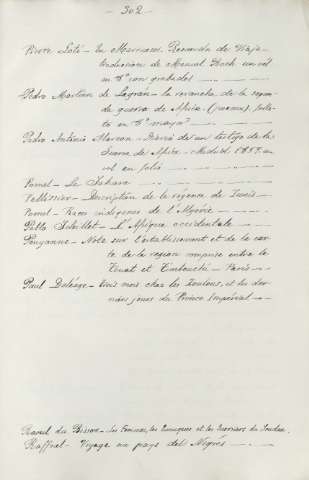 - 302 -
Pierre Loti - En Marruecos. Recuerdos de Viaje
traduccion de Manuel Bosch un vol
en 8º con grabados
Pedro Martien de Lagrán - la revancha de la segun
guerra de Africa (poema) folle
to en 8º mayor
Pedro António Alarcon - Diario de un testigo de la
Guerra de Africa - Madrid 1859. un
vol en folio
Pomel - Le Sahara
Pellissier - Description de la régence de Tunis
Pomel - Races indigènes de l'Algérie
Pablo Sebillot - L'Afrique occidentale
Pouyanne - Note sur l'établissement de la car
te de la région comprise entre le
Touat et Timbouctú - Paris
Paul Deléage - Trois mois chez les Zoulous, et les der
niers jours du Prince Impérial
Raoul du Bisson - Les Femmes, les Eunuques et les Guerriers du Soudan.
Raffnel - Voyage au pays des Nègres